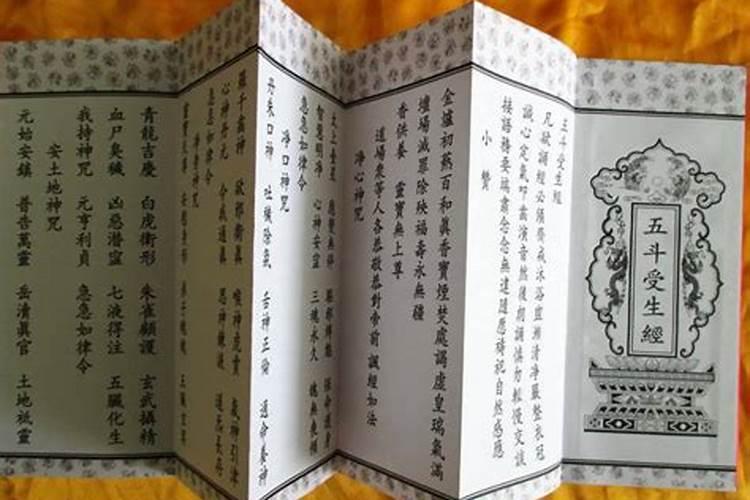 五斗受生經
五斗受生經
凡欲誦經必須齋戒沐浴盥漱清淨嚴整衣冠
誠心定氣叩齒演音然後朗誦慎勿輕慢交談
接語務要端肅念念無違隨愿禱祀自然感應
小讚
金爐初爇百和眞香寶煙焚處謁虛皇瑞氣滿
壇場滅罪除殃福壽永無疆
香供養 靈寶無上尊
道場衆等人各恭敬恭對帝前 諷經如法
淨心神咒
太上台星 應變無停 驅邪縛魅 保命護身
智慧明淨 心神安寧 三魂永久 魄無喪傾
急急如律令
淨口神咒
丹朱口神 吐穢除氛 舌神正倫 通命養神
羅千齒神 卻邪衛眞 喉神虎賁 氣神引津
心神丹元 令我通眞 思神鍊液 道炁長存
急急如律令
淨身神咒
靈寶天尊 安慰身形 弟子魂魄 五臟玄冥
青龍吉慶 白虎衛形 朱雀顧護 玄武攝精
血尸臭穢 凶惡潛窪 七液得注 五臟化生
我持神咒 元亨利貞 急急如律令
安土地神咒
元始安鎮 普告萬靈 岳清眞官 土地祗靈